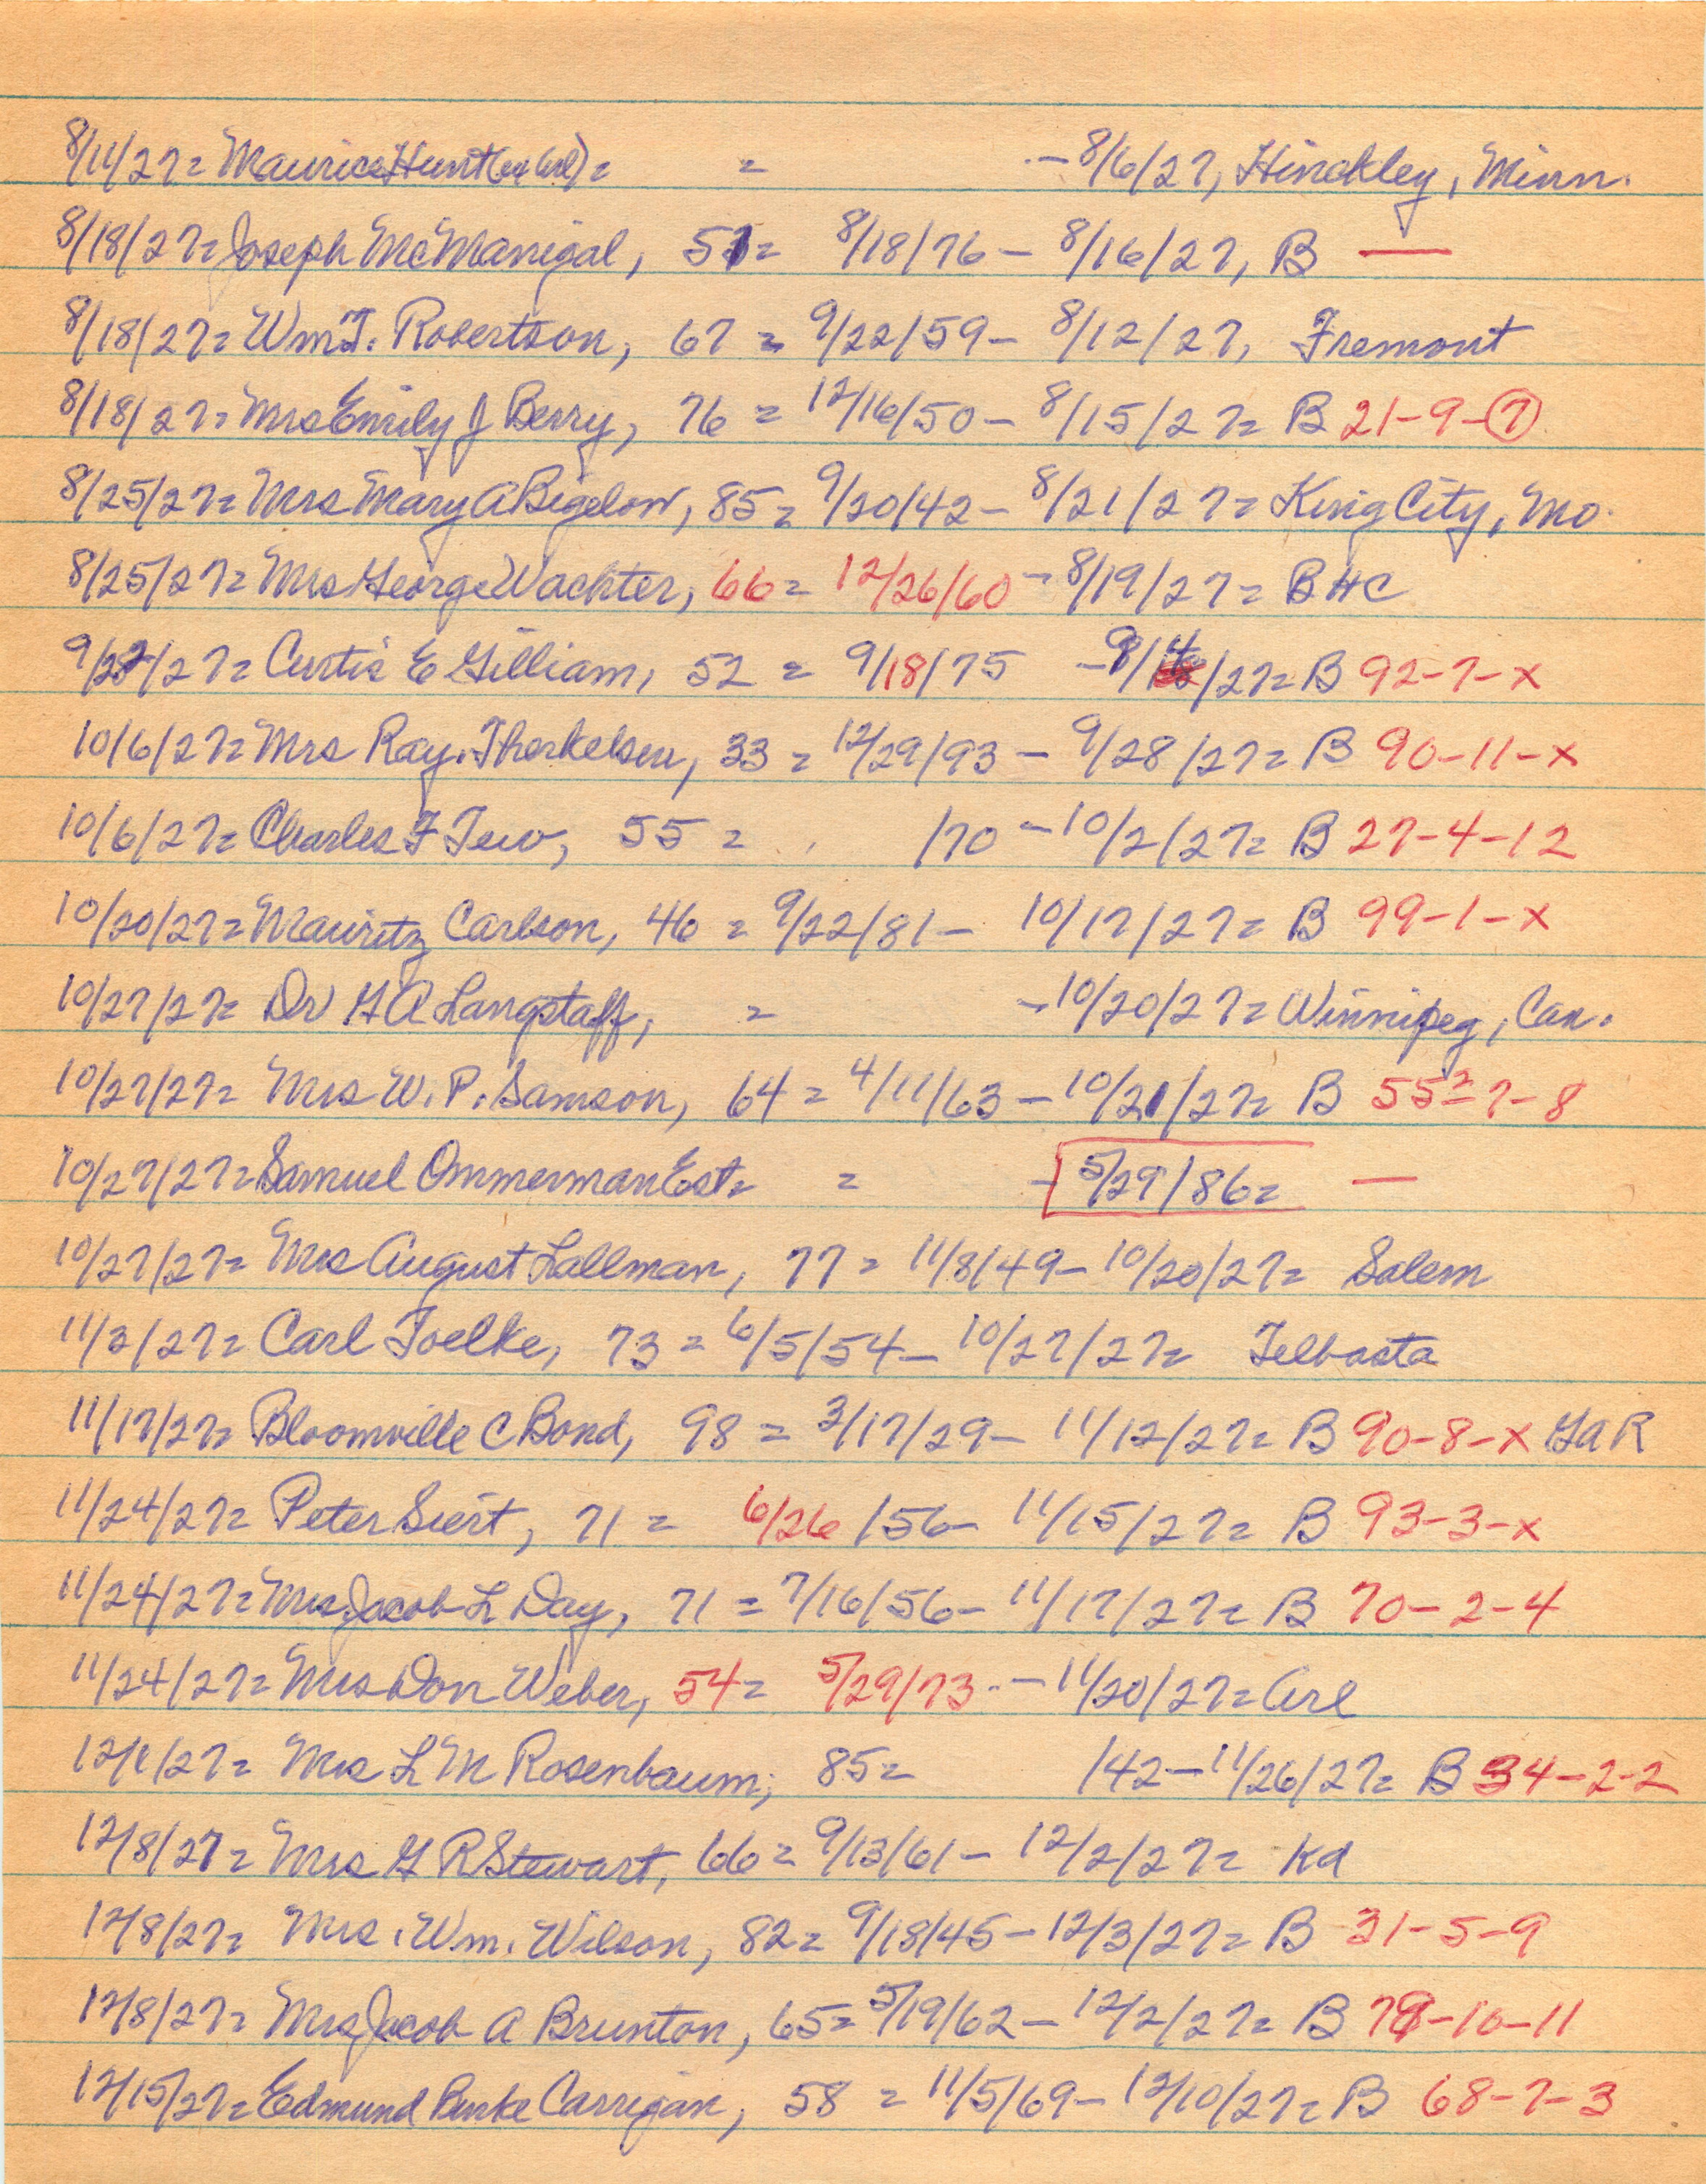 8/11/27= Maurice Hunt (ex Arl) = = - 8/6/27, Hinckley, Minn.
8/18/27= Joseph McManigal, 51= 8/18/76 - 8/16/27, B —
8/18/27= Wm T. Robertson, 67 = 9/22/59 - 8/12/27, Fremont
8/18/27= Mrs Emily J Berry, 76 = 12/16/50 - 8/15/27= B 21-9-7
8/25/27= Mrs Mary A Bigelow, 85 = 9/20/42 - 8/21/27= King City, Mo.
8/25/27= Mrs George Wachter, 66 = 12/26/60 - 8/19/27= B HC
9/22/27= Curtis E Gilliam, 52 = 9/18/75 - 9/ /27= B 92-7-x
10/6/27= Mrs Ray. Therkelsen, 33 = 12/29/93 - 9/28/27= B 90-11-x
10/6/27= Charles F Tew, 55 = /70 - 10/2/27= B 27-4-12
10/20/27= Mauritz Carlson, 46 = 9/22/81 - 10/17/27= B 99-1-x
10/27/27= Dr G A Langstaff, = - 10/20/27= Winnipeg, Can.
10/27/27= Mrs W. P. Samson, 64 = 4/11/63 - 10/21/27= B 55?-7-8
10/27/27= Samuel Ommerman Est= = - 5/29/86= —
10/27/27= Mrs August Lallman, 77 = 11/8/49 - 10/20/27= Salem
11/3/27= Carl Toelke, 73 = 6/5/54 - 10/27/27= Telbasta
11/17/27= Bloomville C Bond, 98 = 3/17/29 - 11/12/27= B 90-8-x GAR
11/24/27= Peter Siert, 71 = 6/26/56 - 11/15/27= B 93-3-x
11/24/27= Mrs Jacob L Day, 71 = 7/16/56 - 11/17/27= B 70-2-4
11/24/27= Mrs Don Weber, 54 = 5/29/73 - 11/20/27= Arl
12/1/27= Mrs L M Rosenbaum, 85= /42 - 11/26/27= B 34-2-2
12/8/27= Mrs G R Stewart, 66 = 9/13/61 - 12/2/27= Kd
12/8/27= Mrs. Wm. Wilson, 82 = 9/18/45 - 12/3/27= B 31-5-9
12/8/27= Mrs Jacob A Brunton, 65 = 5/19/62 - 12/2/27= B 79-10-11
12/15/27= Edmund Burke Carrigan, 58 = 11/5/69 - 12/10/27= B 68-7-3